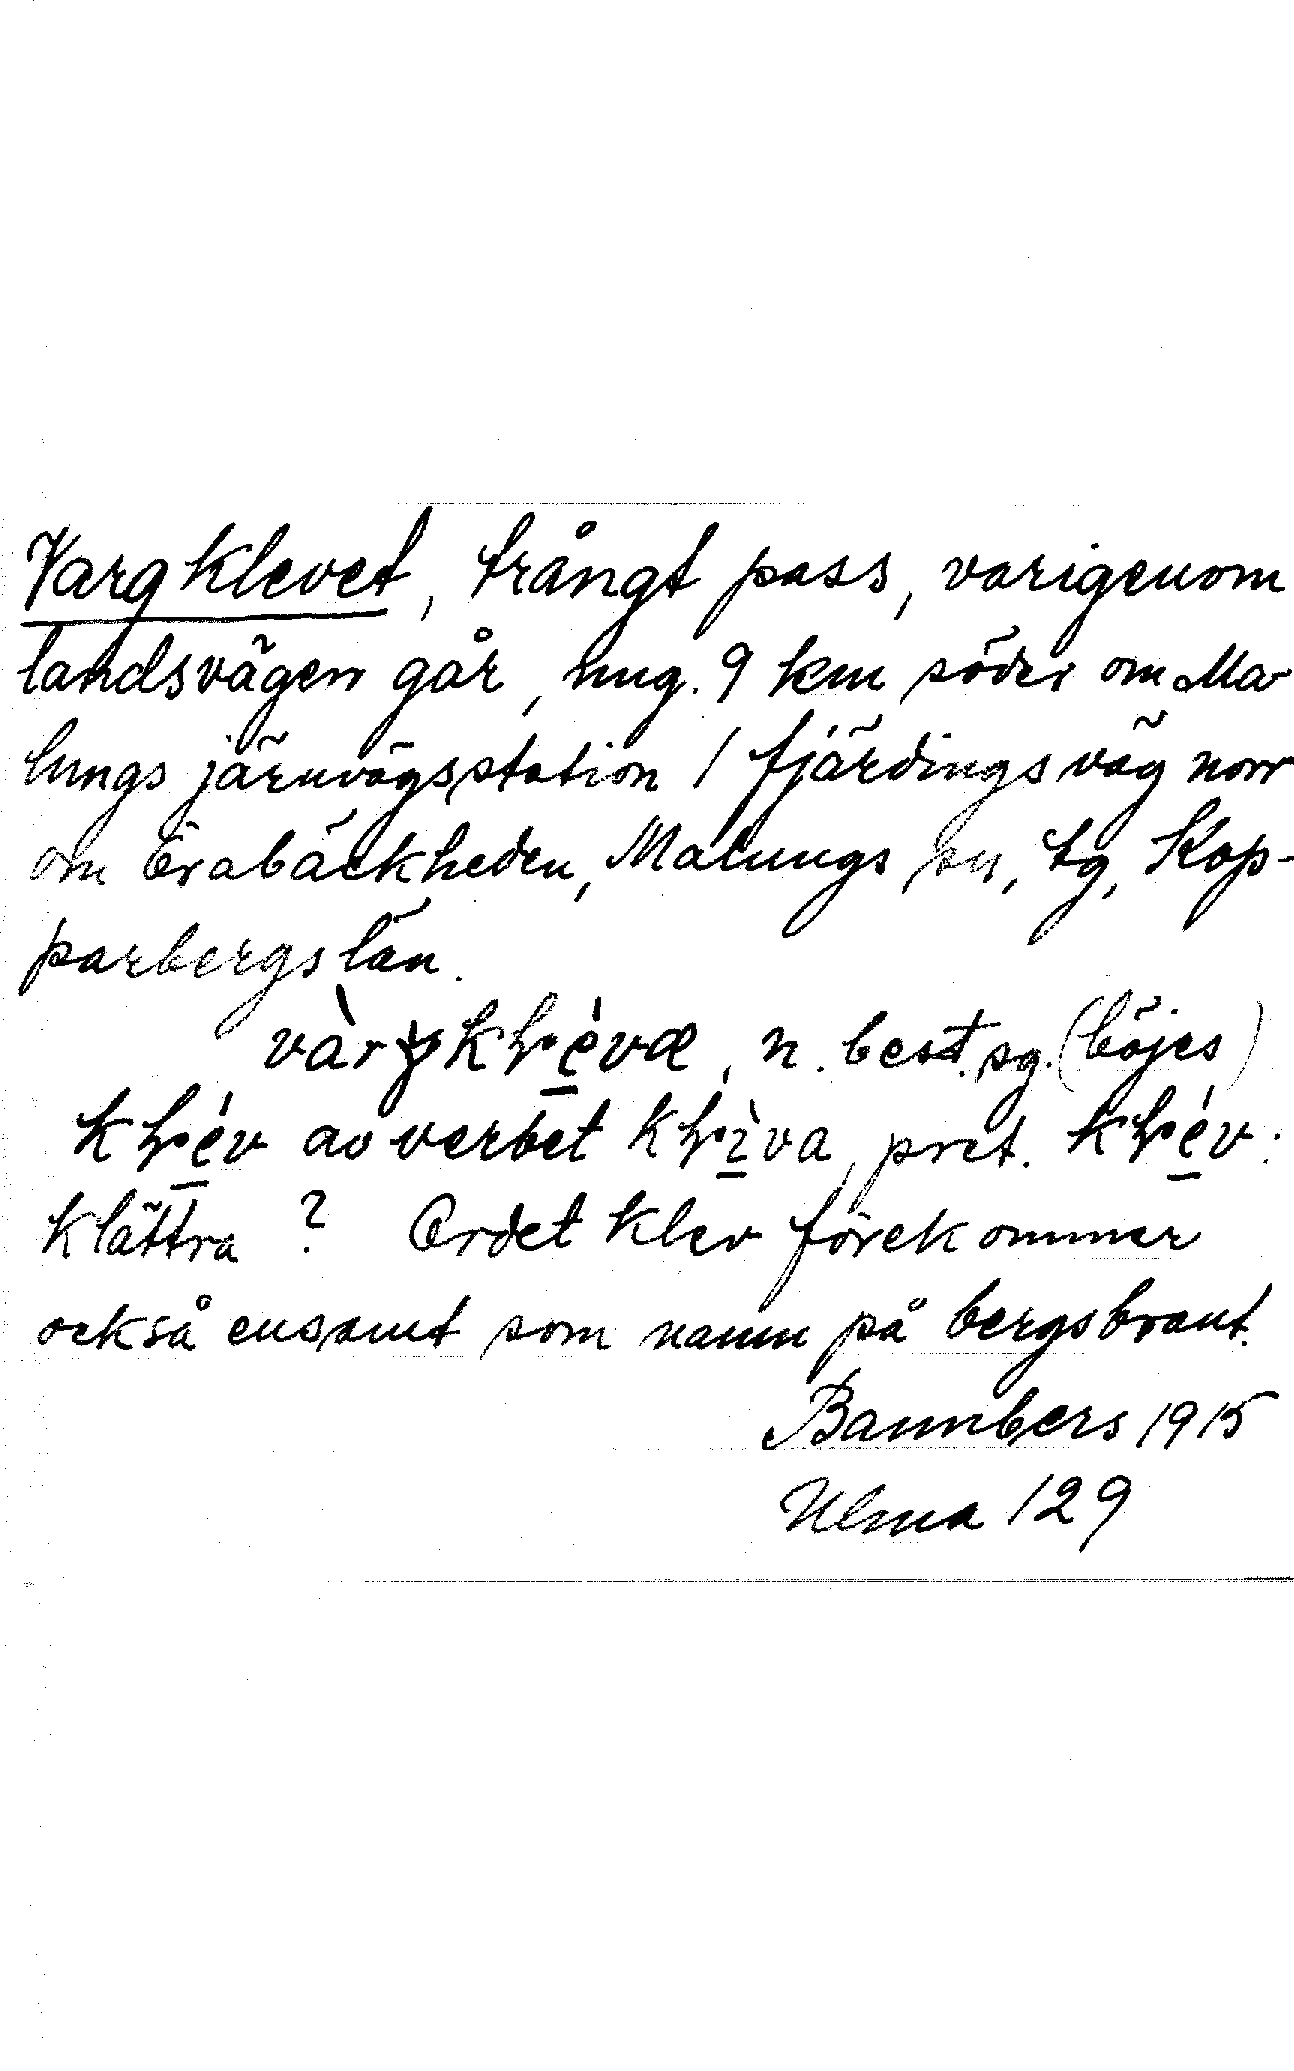 Vargklevet, trångt pass, varigenom
landsvägen går, ung. 9 km söder om Ma-
lungs järnvägsstation 1 fjärdingsväg norr
om Örabäckheden, Malungs sn, tg, Kop-
parbergs län.
vàrgkl̥e̠ ́væ, n. best. sg. (böjes)
kl̥e̠ ́v av verbet kl̥i̠ ̀va, pret. kl̥e̠ ́v:
klättra? Ordet klev förekommer
också ensamt som namn på bergsbrant.
Bannbers 1915
Ulma 129